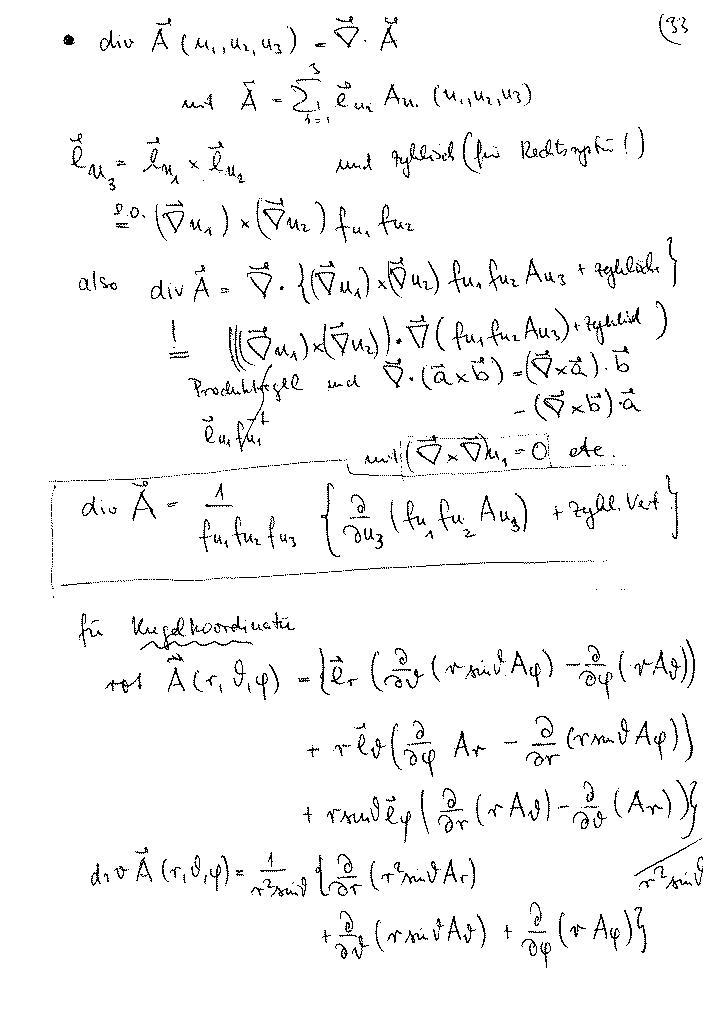 (33
• div A⃗ (u₁,u₂,u₃) = ∇⃗ · A⃗
mit A⃗ = ∑_{i=1}^{3} e⃗_{uᵢ} A_{uᵢ} (u₁,u₂,u₃)
e⃗_{u₃} = e⃗_{u₁} × e⃗_{u₂} und zyklisch (für Rechtssystem!)
s.o. = (∇⃗u₁) × (∇⃗u₂) f_{u₁} f_{u₂}
also div A⃗ = ∇⃗ · {(∇⃗u₁) × (∇⃗u₂) f_{u₁} f_{u₂} A_{u₃} + zyklisch}
! = (((∇⃗u₁) × (∇⃗u₂)) · ∇⃗ (f_{u₁} f_{u₂} A_{u₃}) + zyklisch)
Produktregel und ∇⃗ · (a⃗ × b⃗) = (∇⃗ × a⃗) · b⃗
− (∇⃗ × b⃗) · a⃗
e⃗_{u₁} f_{u₁}^{-1}
mit (∇⃗ × ∇⃗)u₁ = 0 etc.
div A⃗ = 1/(f_{u₁} f_{u₂} f_{u₃}) {∂/∂u₃ (f_{u₁} f_{u₂} A_{u₃}) + zykl. Vert.}
für Kugelkoordinaten
rot A⃗ (r,ϑ,φ) = {e⃗_r (∂/∂ϑ (r sinϑ A_φ) − ∂/∂φ (r A_ϑ))
+ r e⃗_ϑ (∂/∂φ A_r − ∂/∂r (r sinϑ A_φ))
+ r sinϑ e⃗_φ (∂/∂r (r A_ϑ) − ∂/∂ϑ (A_r))}
/ r² sinϑ
div A⃗ (r,ϑ,φ) = 1/(r² sinϑ) {∂/∂r (r² sinϑ A_r)
+ ∂/∂ϑ (r sinϑ A_ϑ) + ∂/∂φ (r A_φ)}